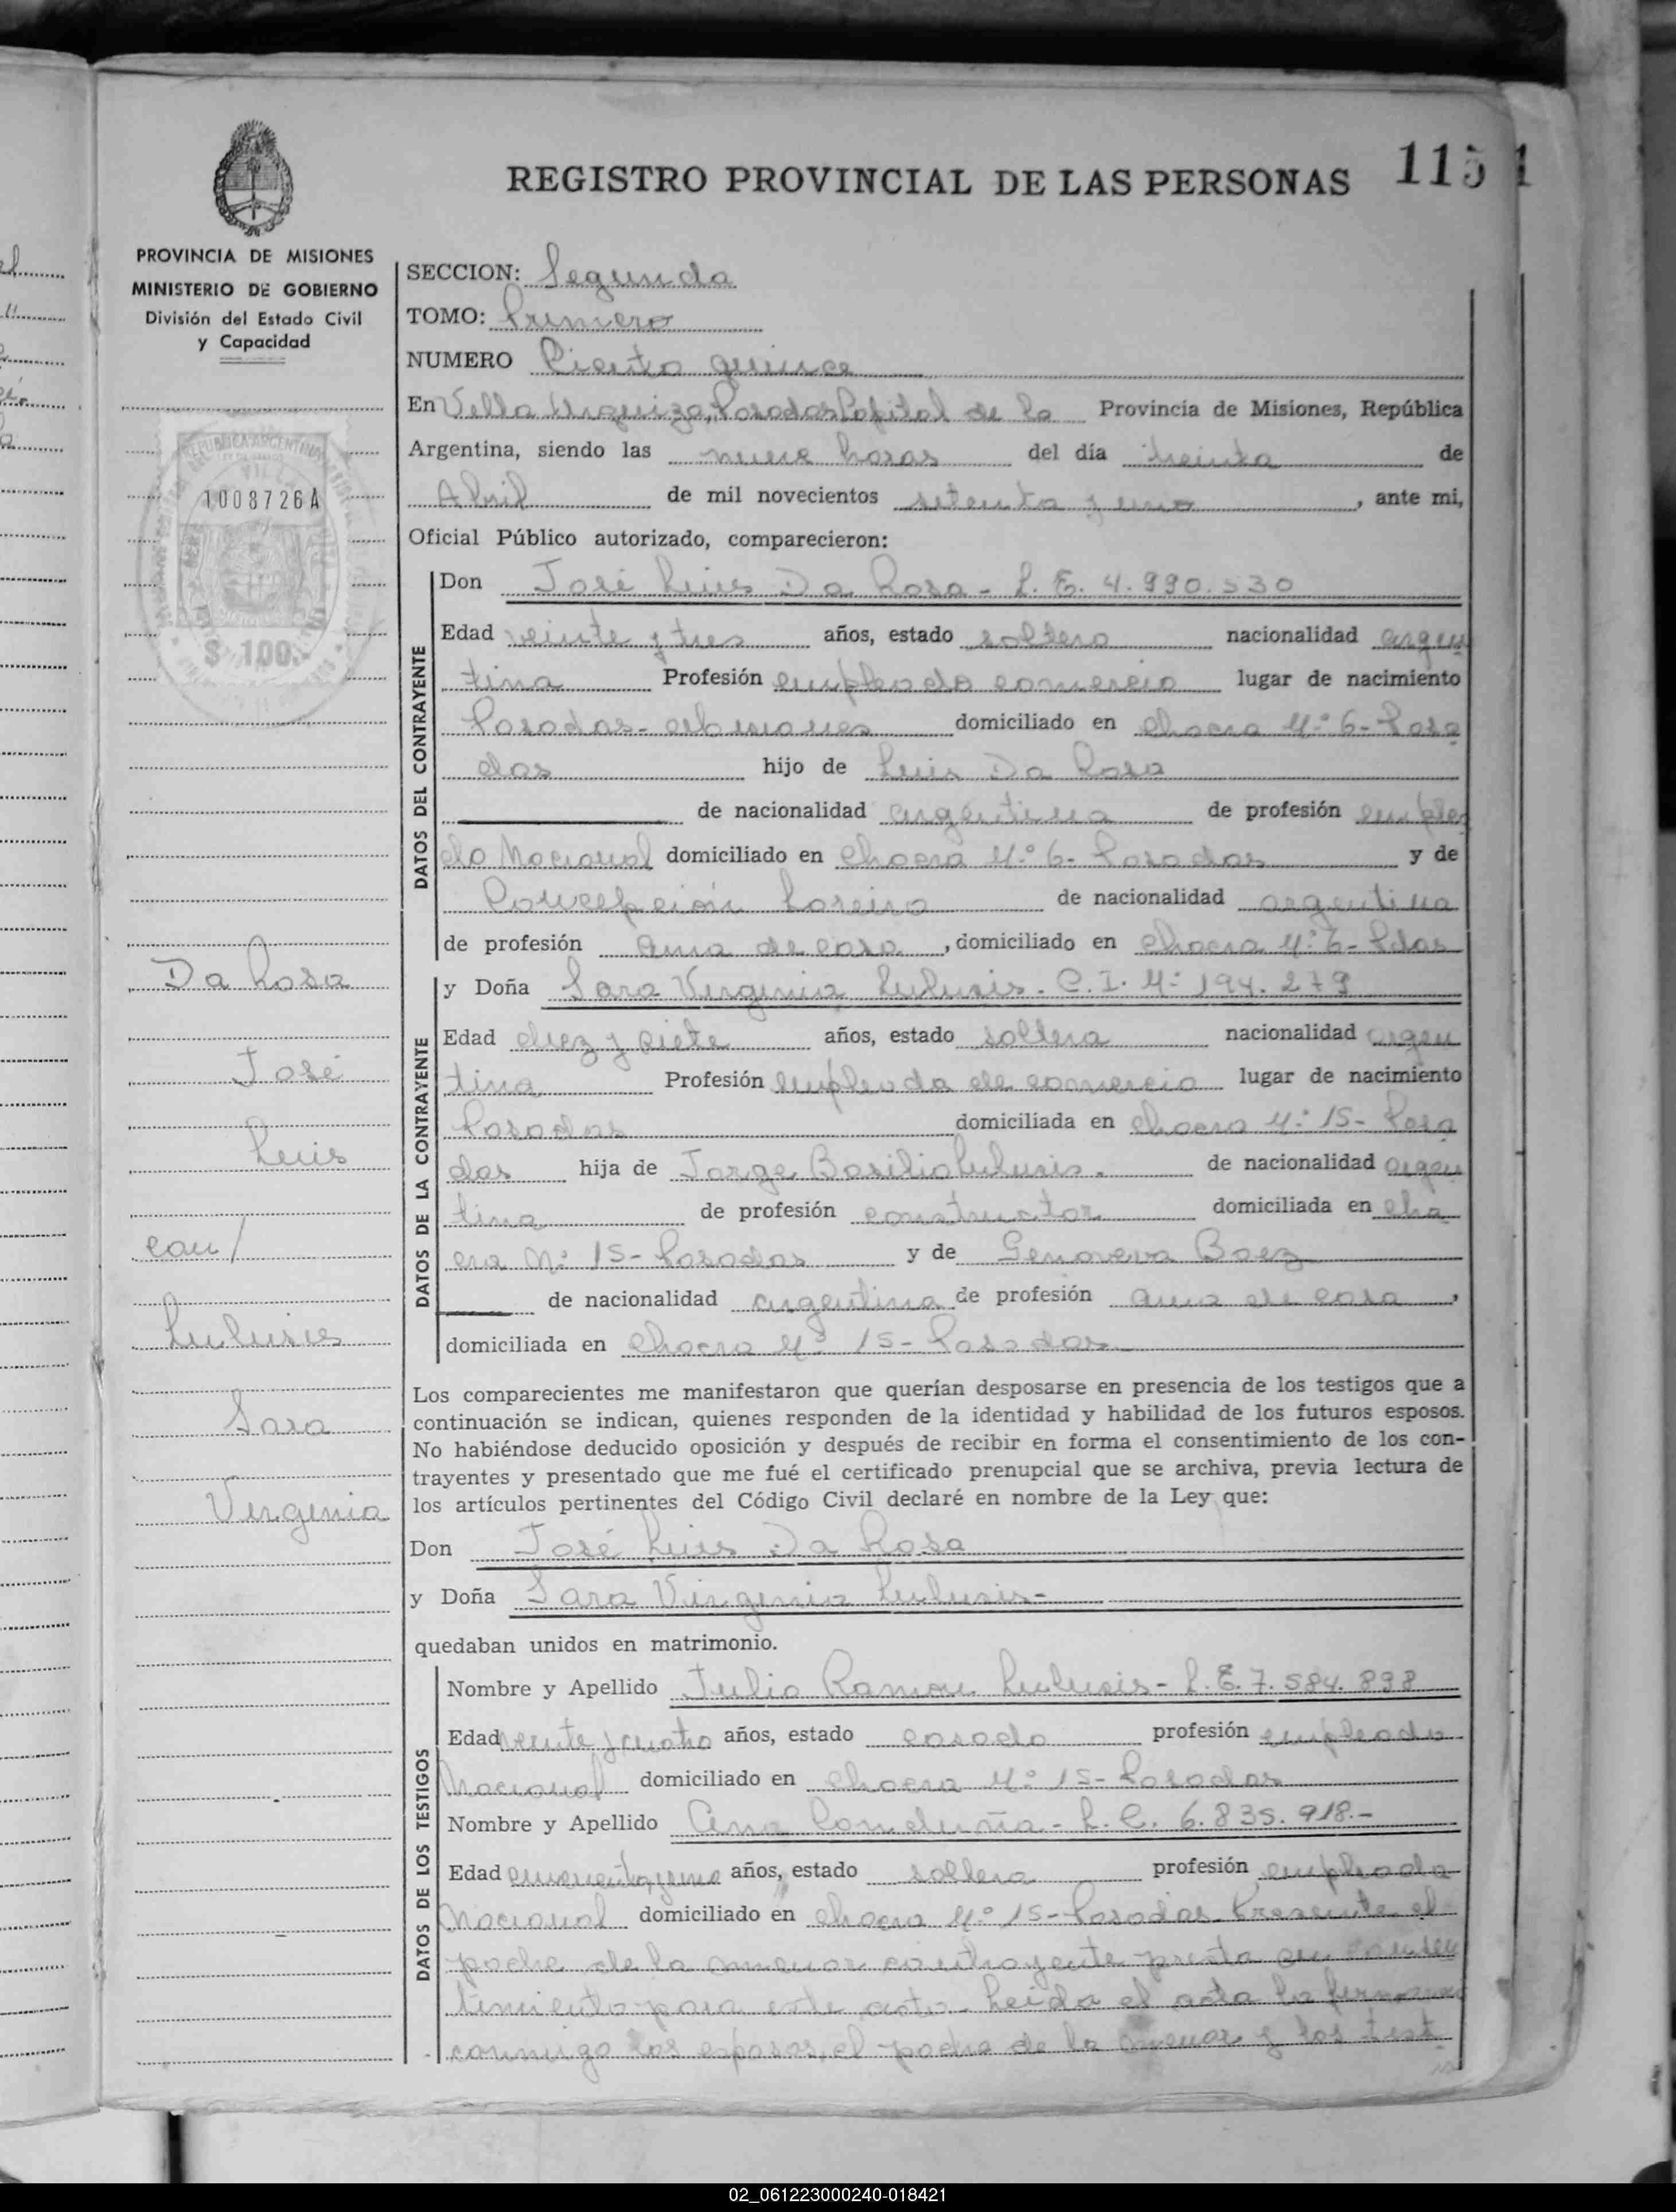 REGISTRO PROVINCIAL DE LAS PERSONAS 115 1
PROVINCIA DE MISIONES
MINISTERIO DE GOBIERNO
División del Estado Civil
y Capacidad
SECCION: Segunda
TOMO: Primero
NUMERO Ciento quince
En Villa Urquiza, Posadas Capital de la Provincia de Misiones, República
Argentina, siendo las nueve horas del día treinta de
Abril de mil novecientos setenta y uno, ante mi,
Oficial Público autorizado, comparecieron:
REPUBLICA ARGENTINA
1008726A
$ 100.-
DATOS DEL CONTRAYENTE
Don José Luis Da Rosa - L.E. 4.990.530
Edad veinte y tres años, estado soltero nacionalidad argen
tina Profesión empleado comercio lugar de nacimiento
Posadas - Misiones domiciliado en Chacra Nº 6 - Posa
das hijo de Luis Da Rosa
de nacionalidad argentina de profesión emplea
do Nacional domiciliado en Chacra Nº 6 - Posadas y de
Concepción Loreiro de nacionalidad argentina
de profesión ama de casa, domiciliado en Chacra Nº 6 - Pdas
DATOS DE LA CONTRAYENTE
y Doña Sara Virginia Lulusis - C.I. Nº 194.279
Edad diez y siete años, estado soltera nacionalidad argen
tina Profesión empleada de comercio lugar de nacimiento
Posadas domiciliada en Chacra Nº 15 - Posa
das hija de Jorge Basilio Lulusis. de nacionalidad argen
tina de profesión constructor domiciliada en cha
cra Nº 15 - Posadas y de Genoveva Baez
de nacionalidad argentina de profesión ama de casa,
domiciliada en Chacra Nº 15 - Posadas
Los comparecientes me manifestaron que querían desposarse en presencia de los testigos que a
continuación se indican, quienes responden de la identidad y habilidad de los futuros esposos.
No habiéndose deducido oposición y después de recibir en forma el consentimiento de los con-
trayentes y presentado que me fué el certificado prenupcial que se archiva, previa lectura de
los artículos pertinentes del Código Civil declaré en nombre de la Ley que:
Don José Luis Da Rosa
y Doña Sara Virginia Lulusis -
quedaban unidos en matrimonio.
DATOS DE LOS TESTIGOS
Nombre y Apellido Julio Ramon Lulusis - L.E. 7.584.898
Edad veinte y cuatro años, estado casado profesión empleado
Nacional domiciliado en Chacra Nº 15 - Posadas
Nombre y Apellido Ana - L.C. 6.835.918.-
Edad cincuenta y uno años, estado soltera profesión empleada
Nacional domiciliado en Chacra Nº 15 - Posadas. Presente el
padre de la menor contrayente presta su consen
timiento para este acto. Leída el acta la firman
conmigo los esposos, el padre de la menor y los test
Da Rosa
José
Luis
con/
Lulusis
Sara
Virginia
02_061223000240-018421